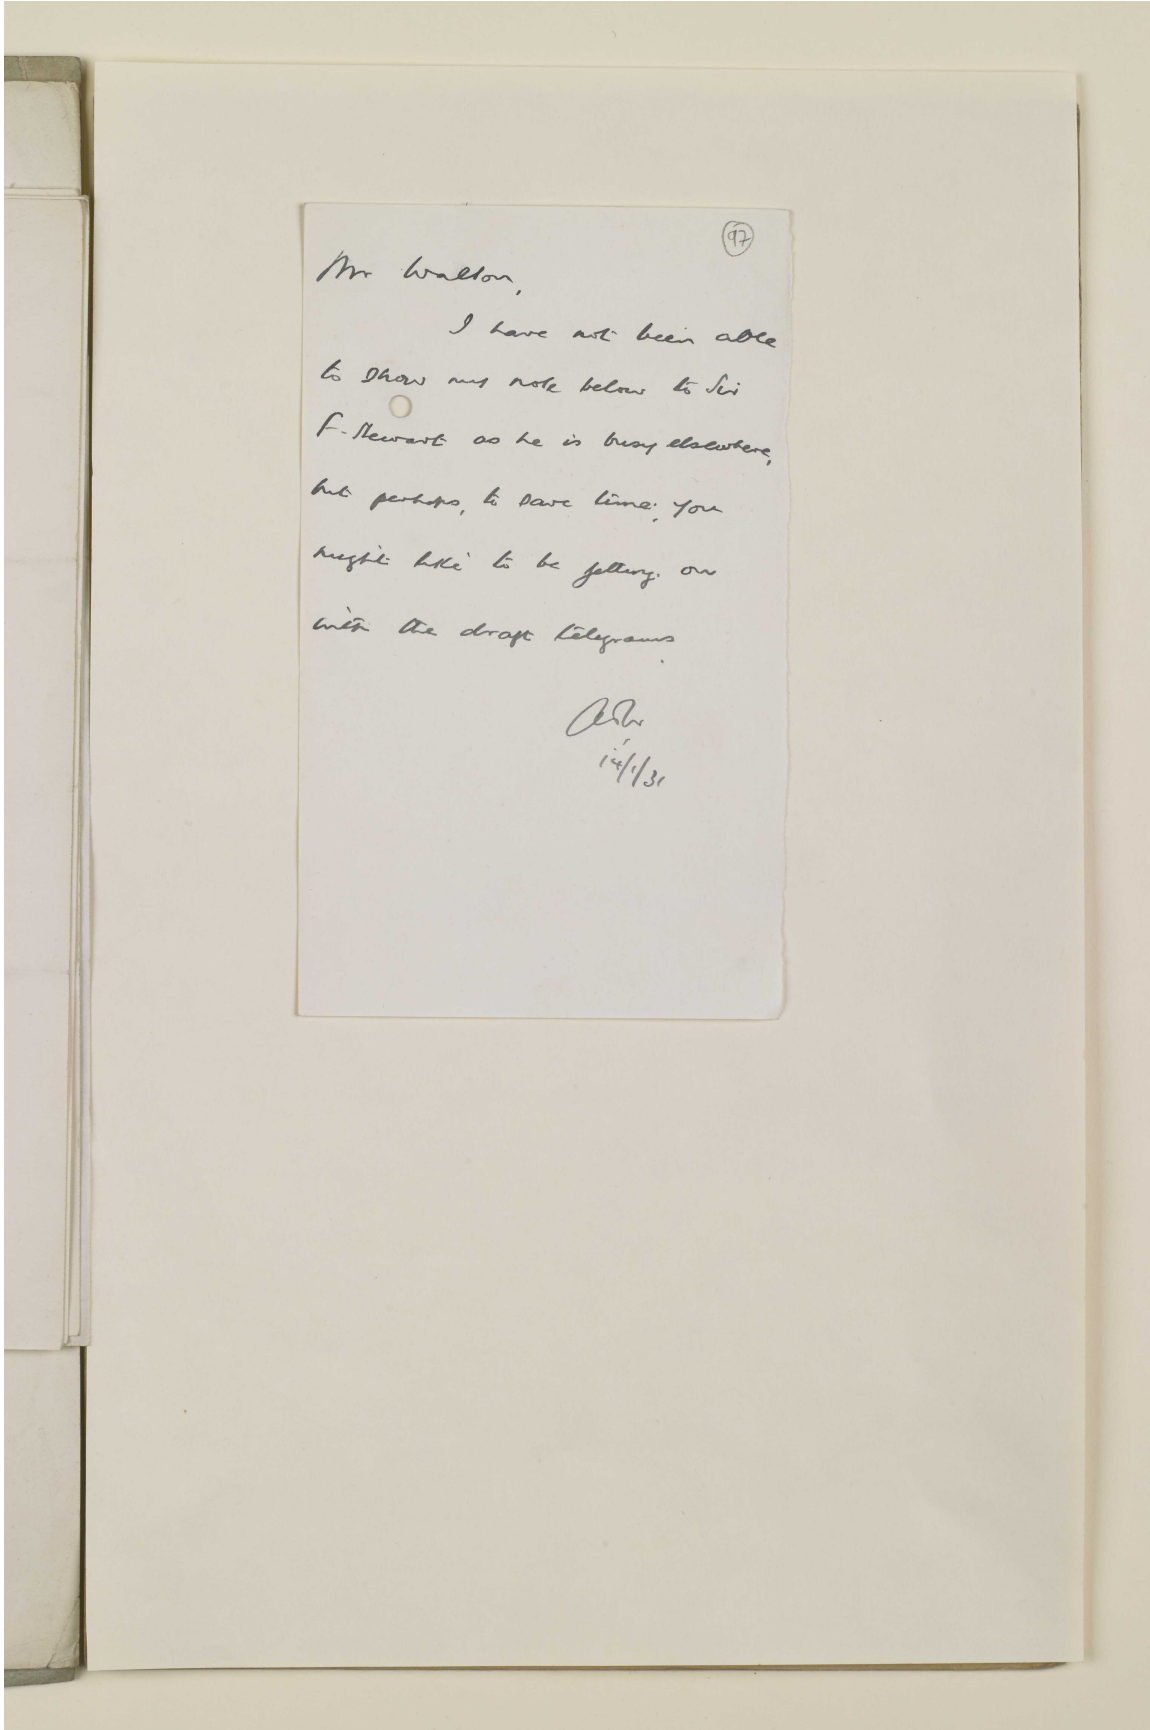 97
Mr Walton,
I have not been able
to show my note below to Sir
F. Stewart as he is busy elsewhere,
but perhaps, to save time, you
might like to be getting on
with the draft telegrams.
14/1/31